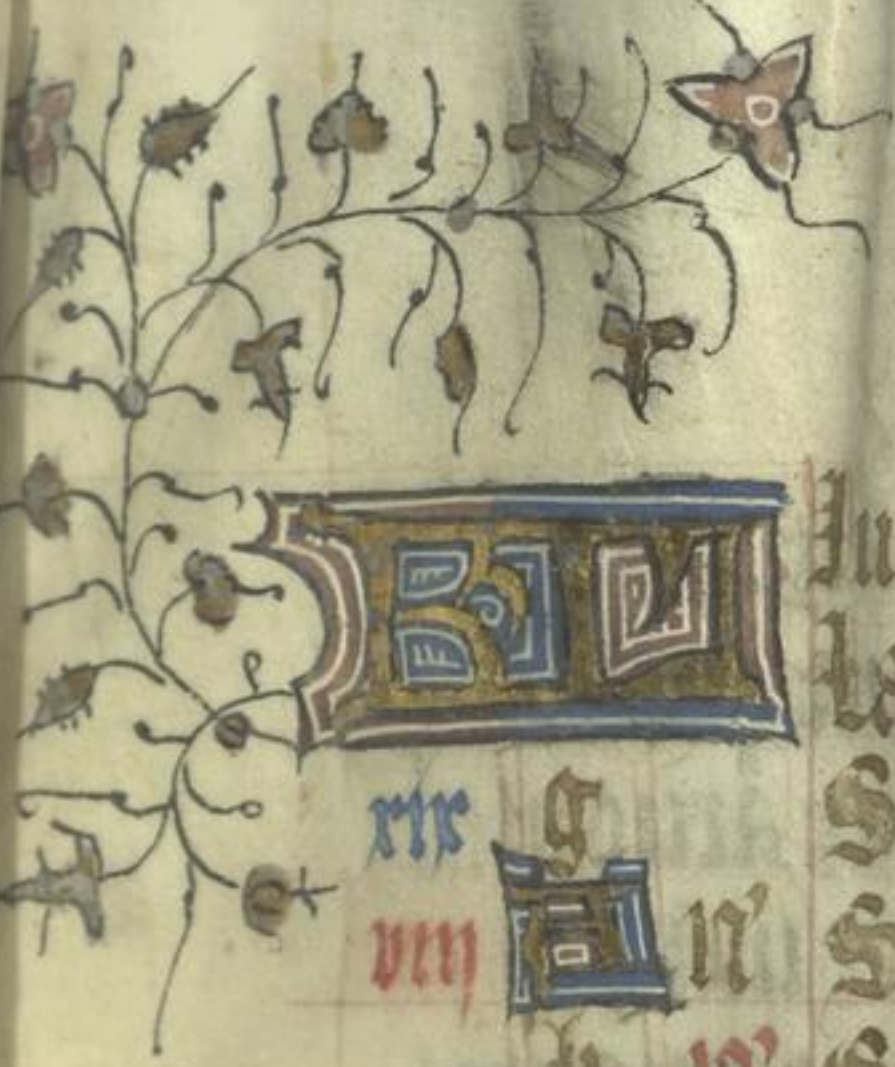 KL Iu
La
xix g S
viii A n' S